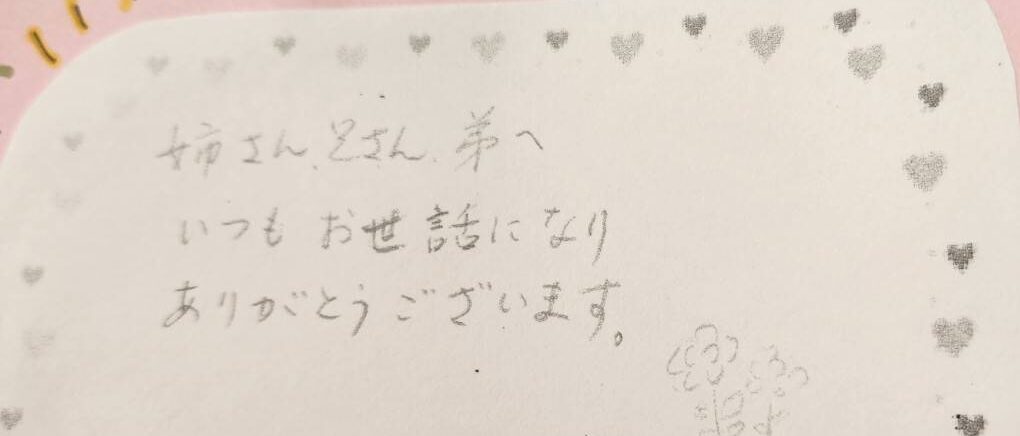 姉さん、兄さん、弟へ
いつもお世話になり
ありがとうございます。